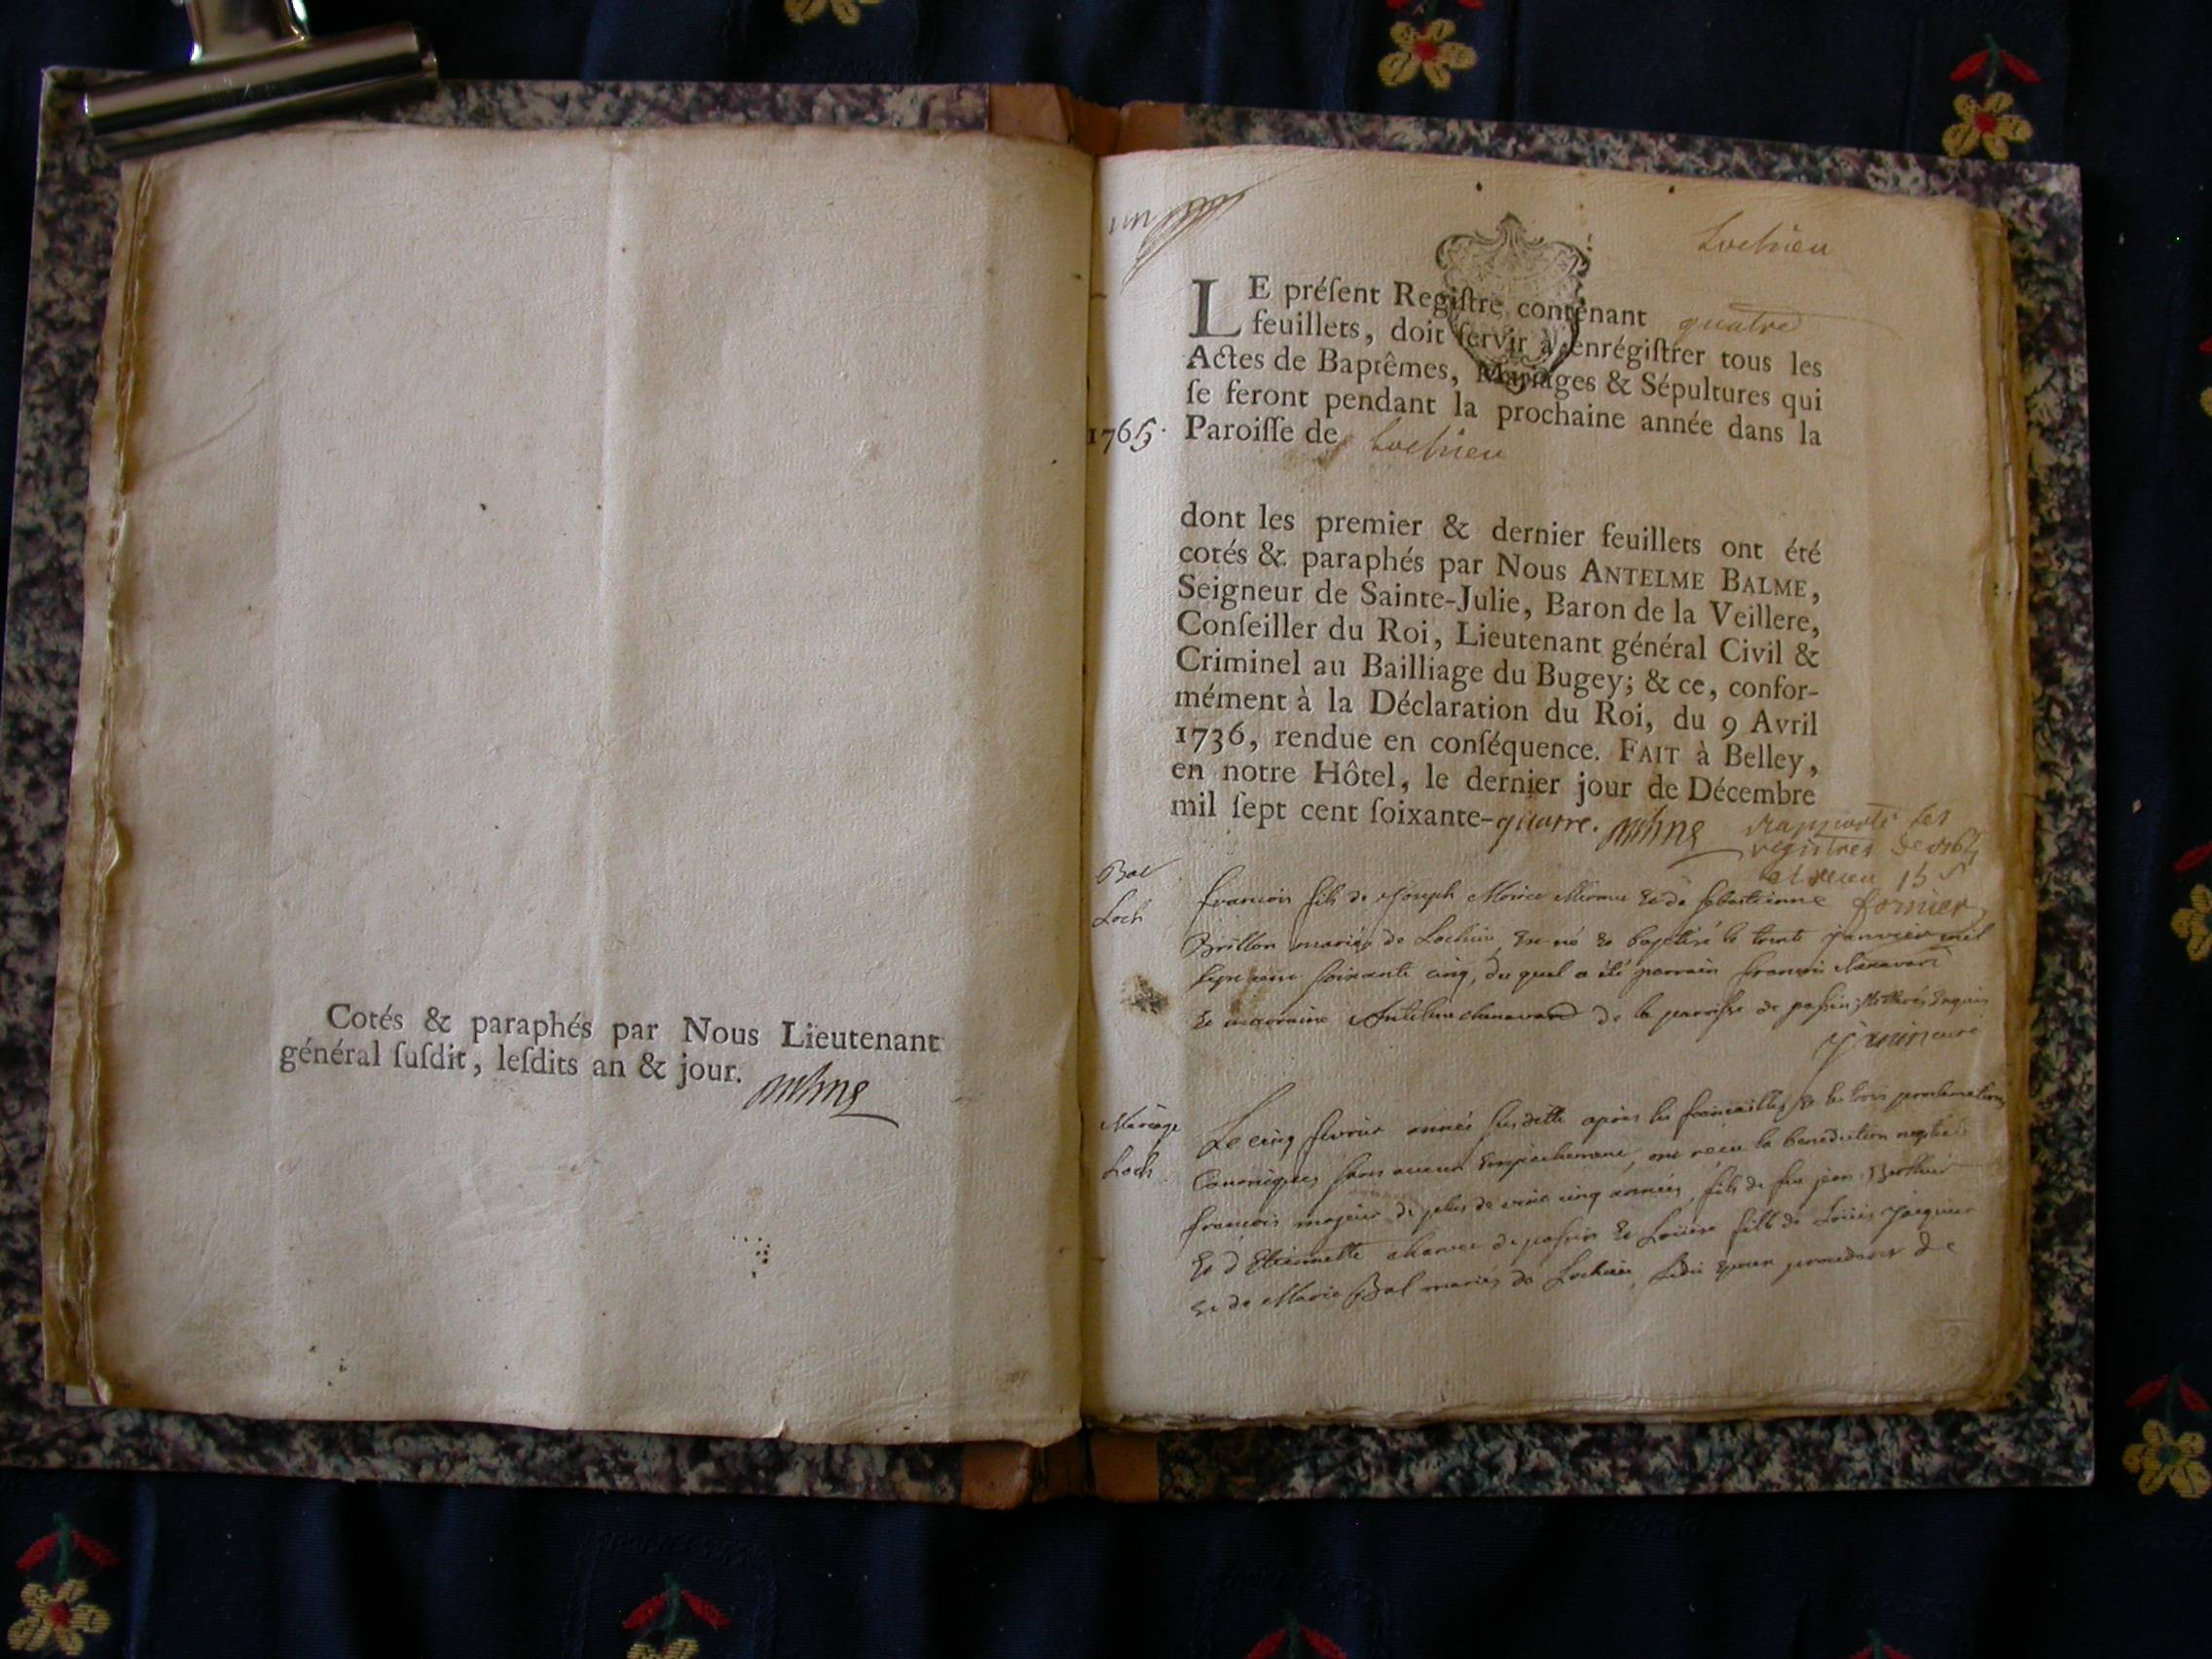 Cotés & paraphés par Nous Lieutenant
général ſuſdit, leſdits an & jour.
un
Lochieu
LE préſent Regiſtre contenant quatre
feuillets, doit ſervir à enrégiſtrer tous les
Actes de Baptêmes, Mariages & Sépultures qui
ſe feront pendant la prochaine année dans la
1765. Paroiſſe de Lochieu
dont les premier & dernier feuillets ont été
cotés & paraphés par Nous ANTELME BALME,
Seigneur de Sainte-Julie, Baron de la Veillere,
Conſeiller du Roi, Lieutenant général Civil &
Criminel au Bailliage du Bugey; & ce, confor-
mément à la Déclaration du Roi, du 9 Avril
1736, rendue en conſéquence. FAIT à Belley,
en notre Hôtel, le dernier jour de Décembre
mil ſept cent ſoixante-quatre.
rapporté les
registres de
fornier
Bat
Loch
francois fils de Joseph et de sebastienne
Brillon mariés de Lochieu, est né et baptisé le trente janvier mil
sept cent soixante cinq, du quel a été parrain francois
et marraine Antelme chanavard de la parroisse de passin, enquis
curé
Mariage
Loch
Le cinq fevrier année susditte apres les fiancailles et les trois proclamations
Canoniques, sans aucun Empechement, ont recu la benediction nuptiale
francois majeur de plus de vint cinq années, fils de feu jean Berthier
et d'Etiennette charvet de passin et Loüise fille de Loüis jacquier
et de Marie Bal mariés de Lochieu, de